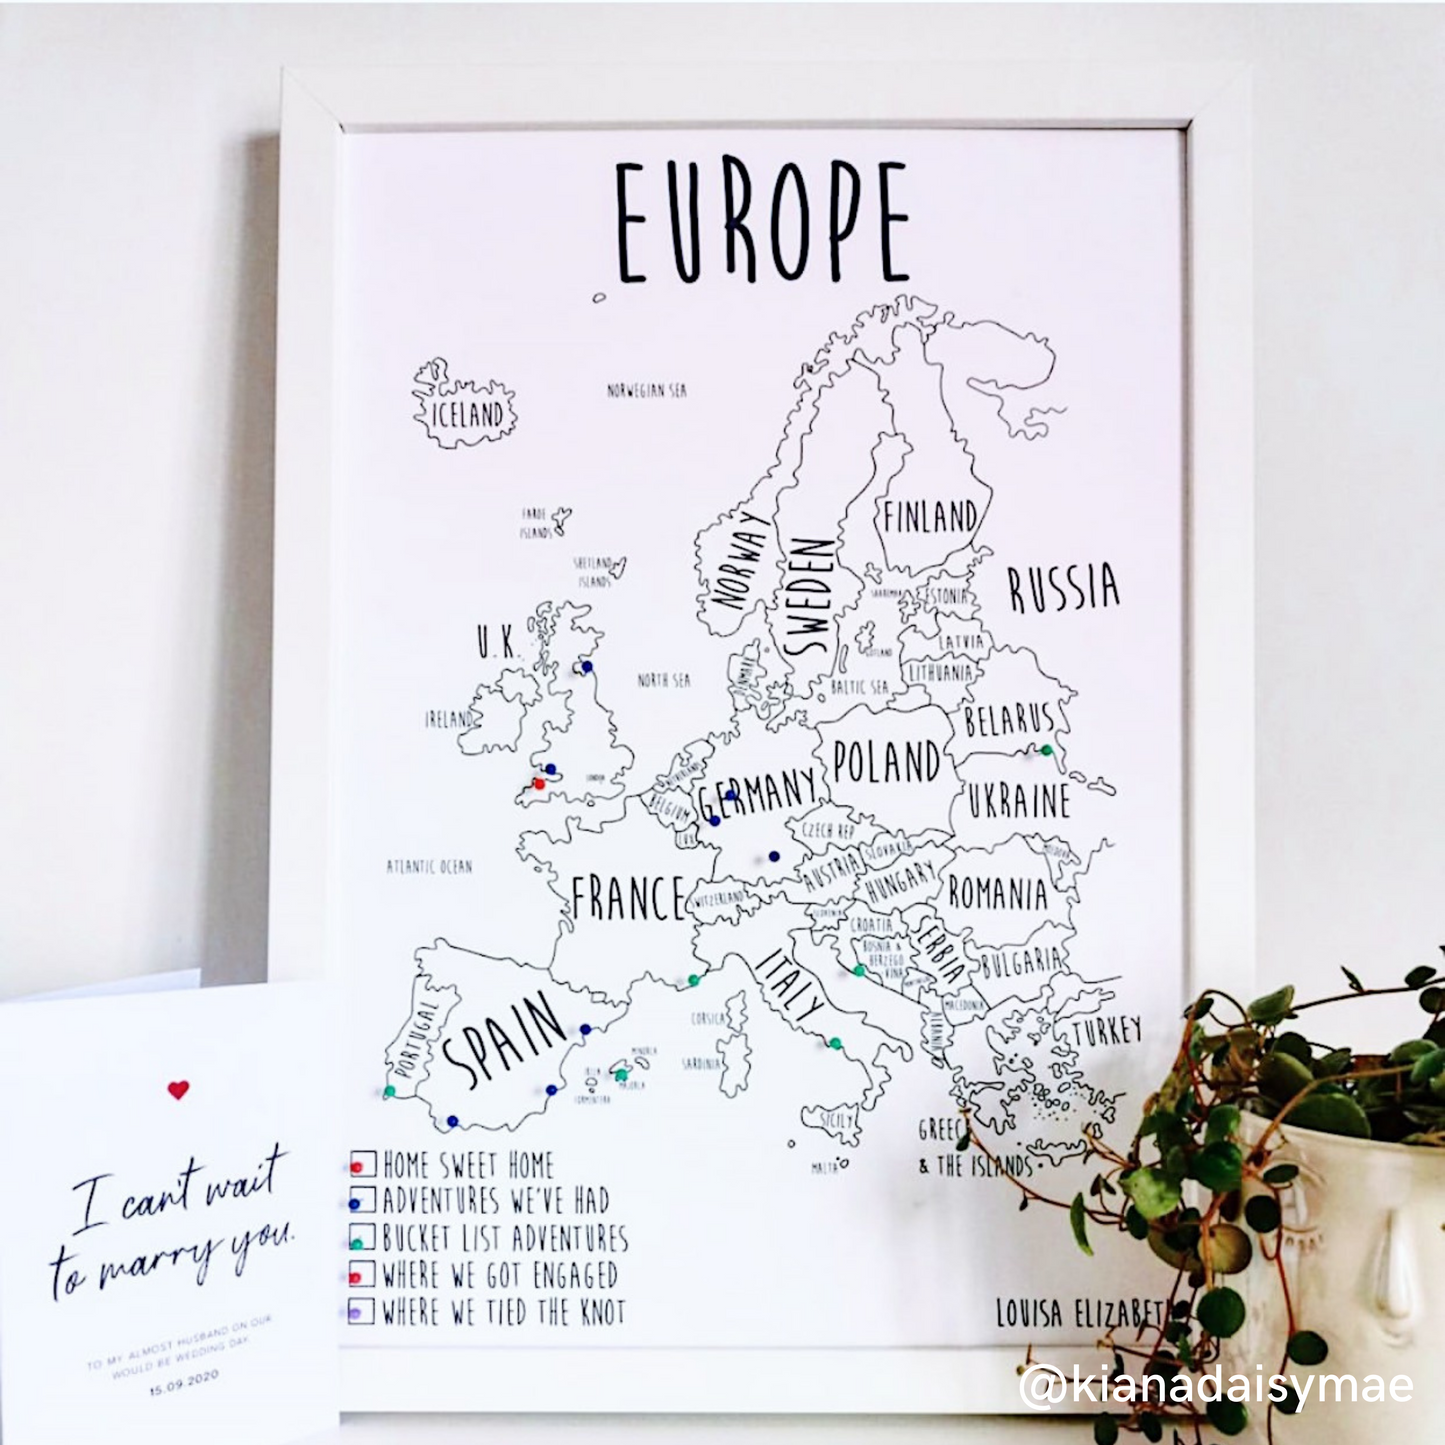 EUROPE
NORWEGIAN SEA
ICELAND
FAROE
ISLANDS
SHETLAND
ISLANDS
NORWAY
SWEDEN
FINLAND
RUSSIA
SAAREMAA
ESTONIA
U.K.
LATVIA
GOTLAND
LITHUANIA
NORTH SEA
DENMARK
BALTIC SEA
IRELAND
BELARUS
POLAND
LONDON
NETHERLANDS
GERMANY
BELGIUM
UKRAINE
LUX
CZECH REP
ATLANTIC OCEAN
SLOVAKIA
MOLDOVA
AUSTRIA
HUNGARY
FRANCE
SWITZERLAND
ROMANIA
SLOVENIA
CROATIA
BOSNIA &
HERZEGO
VINA
SERBIA
BULGARIA
ITALY
MACEDONIA
PORTUGAL
SPAIN
CORSICA
ALBANIA
TURKEY
MINORCA
SARDINIA
MAJORCA
FORMENTERA
SICILY
MALTA
GREECE
& THE ISLANDS
HOME SWEET HOME
ADVENTURES WE'VE HAD
BUCKET LIST ADVENTURES
WHERE WE GOT ENGAGED
WHERE WE TIED THE KNOT
LOUISA ELIZABETH
I can't wait
to marry you.
TO MY ALMOST HUSBAND ON OUR
WOULD BE WEDDING DAY.
15.09.2020
@kianadaisymae